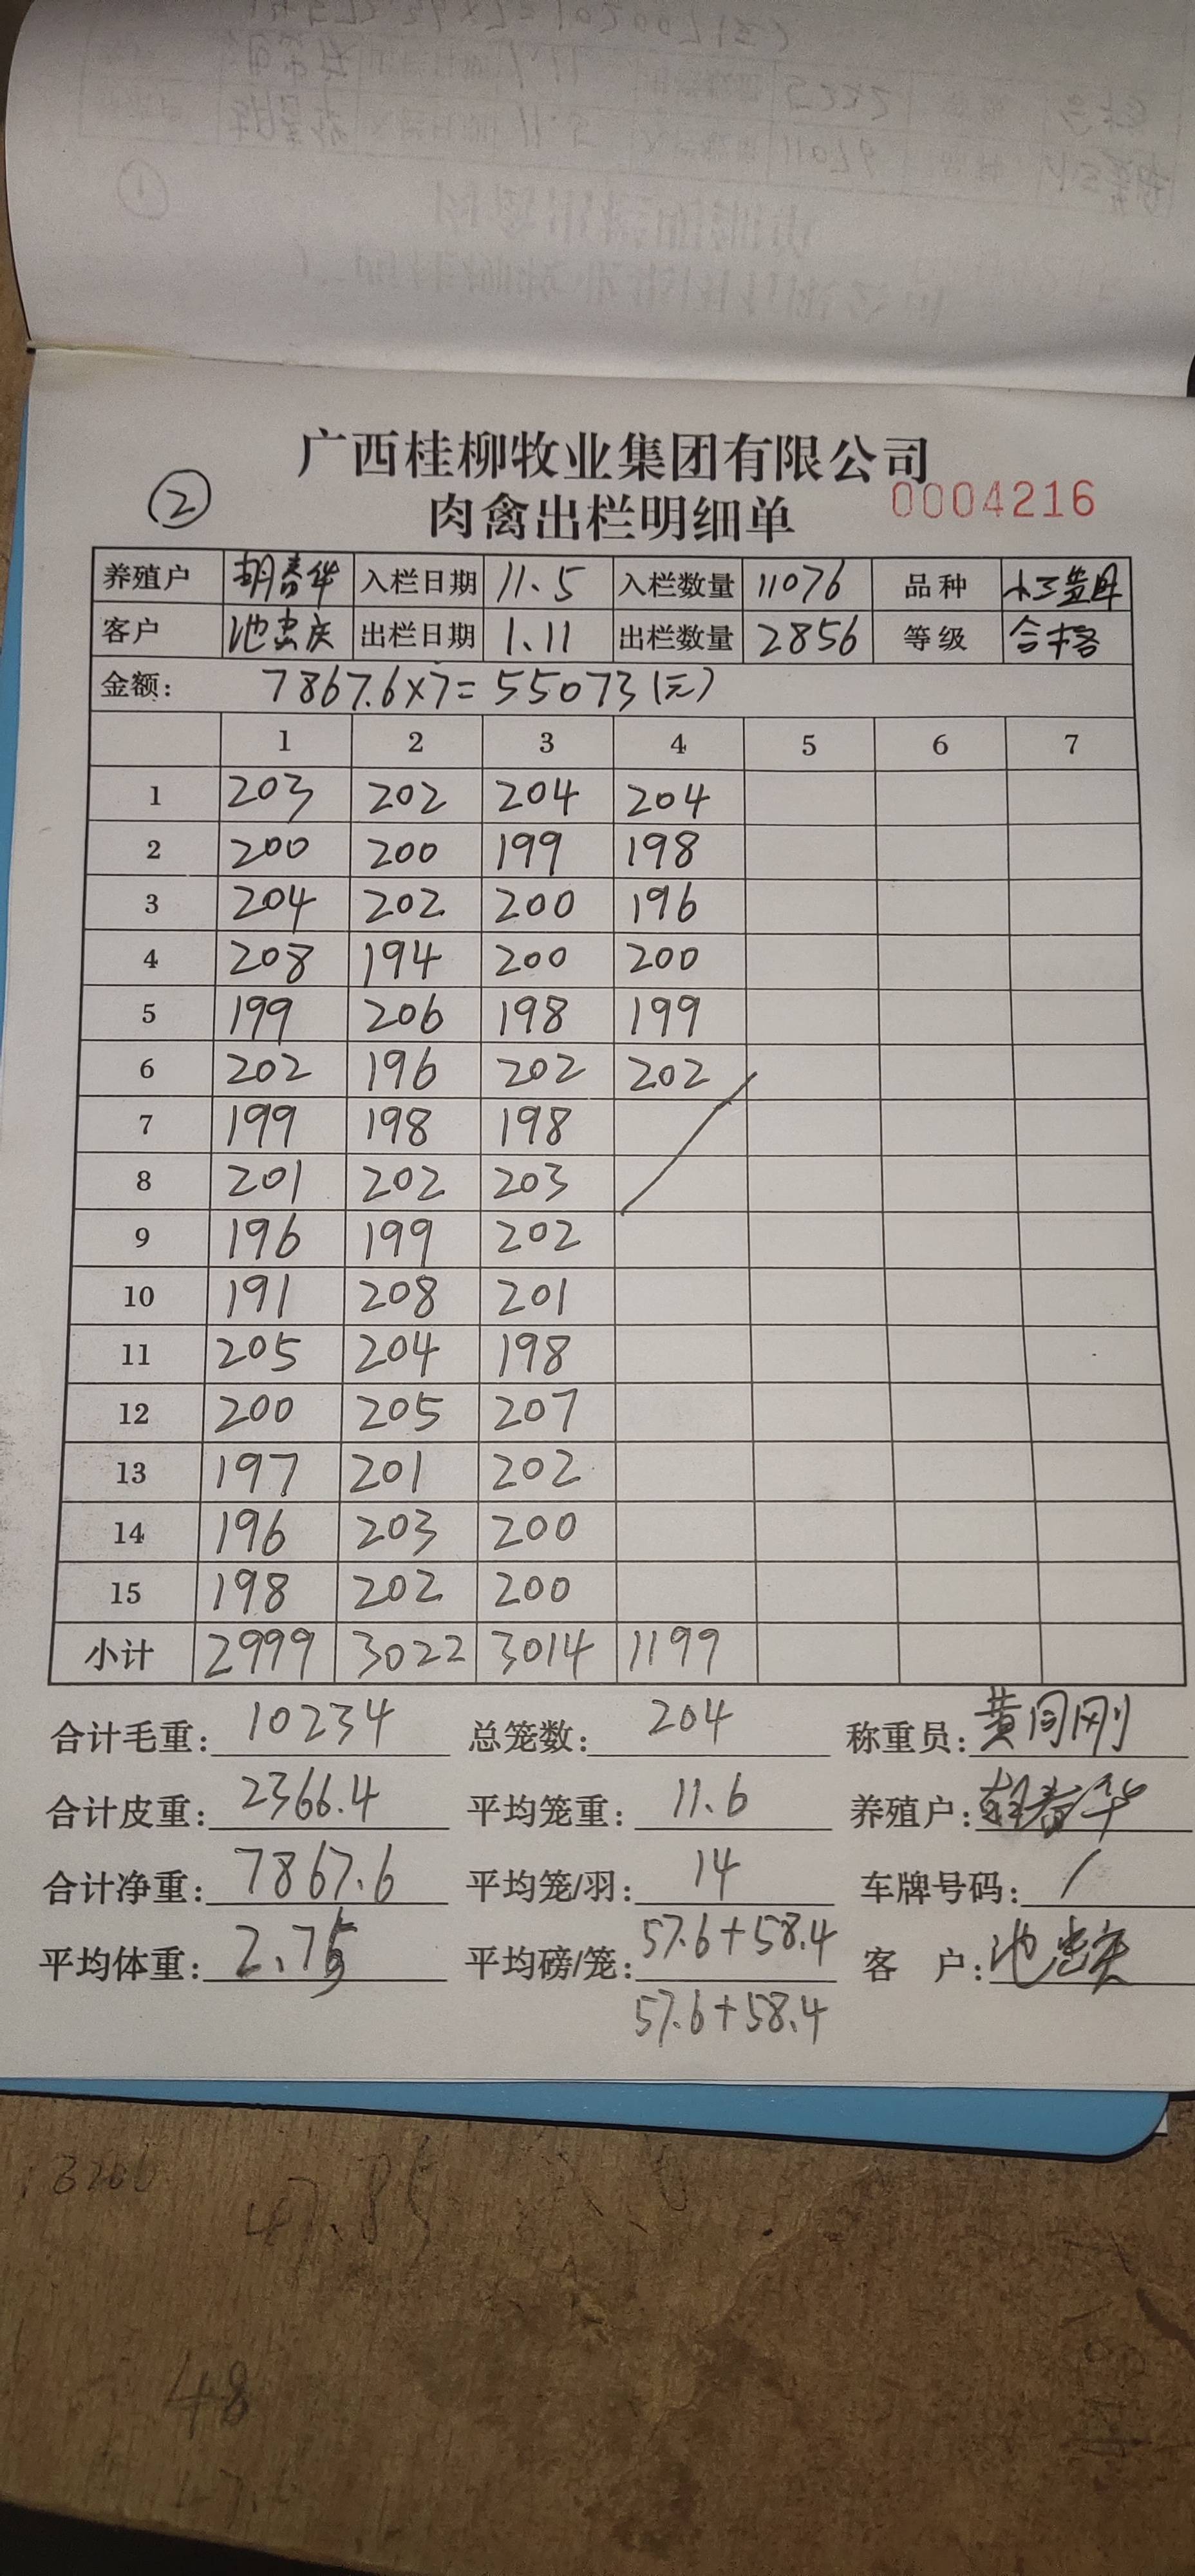 广西桂柳牧业集团有限公司
② 肉禽出栏明细单 0004216
养殖户 胡春华 入栏日期 11.5 入栏数量 11076 品种 小三黄母
客户 池忠庆 出栏日期 1.11 出栏数量 2856 等级 合格
金额： 7867.6×7=55073(元)
1 2 3 4 5 6 7
1 203 202 204 204
2 200 200 199 198
3 204 202 200 196
4 208 194 200 200
5 199 206 198 199
6 202 196 202 202
7 199 198 198
8 201 202 203
9 196 199 202
10 191 208 201
11 205 204 198
12 200 205 207
13 197 201 202
14 196 203 200
15 198 202 200
小计 2999 3022 3014 1199
合计毛重: 10234 总笼数: 204 称重员: 黄同刚
合计皮重: 2366.4 平均笼重: 11.6 养殖户: 胡春华
合计净重: 7867.6 平均笼/羽: 14 车牌号码: /
平均体重: 2.75 平均磅/笼: 57.6+58.4 客 户: 池忠庆
57.6+58.4
47.85
48